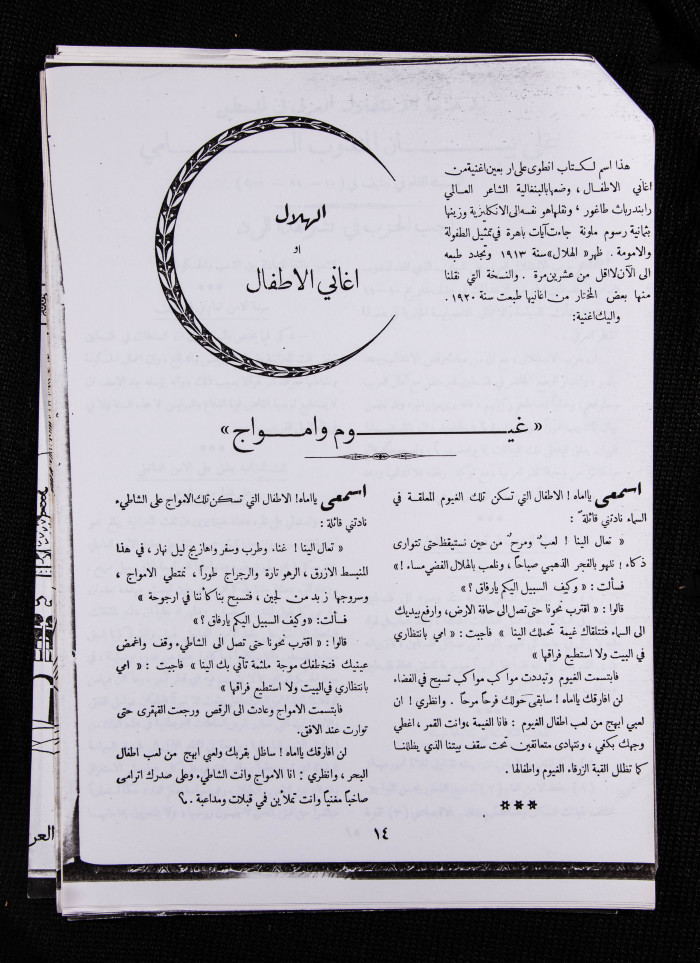 هذا اسم لكتاب انطوى على اربعين اغنية من
اغاني الاطفال ، وضعها بالبنغالية الشاعر العالي
رابندرنات طاغور ، ونقلها هو نفسه الى الانكليزية وزينها
بثمانية رسوم ملونة جاءت آيات باهرة في تمثيل الطفولة
والامومة . ظهر « الهلال » سنة ١٩١٣ وتجدد طبعه
الى الآن لا اقل من عشرين مرة . والنسخة التي نقلنا
منها بعض المختار من اغانيها طبعت سنة ١٩٢٠ .
واليك اغنية :
الهلال
او
اغاني الاطفال
« غيـــوم وامـــواج »
اسمعي يااماه ! الاطفال التي تسكن تلك الغيوم المعلقة في
السماء نادتني قائلة :
« تعال الينا ! لعبٌ ومرحٌ من حين نستيقظ حتى تتوارى
ذكاء ؛ نلهو بالفجر الذهبي صباحاً ، ونلعب بالهلال الفضي مساء ! »
فسألت : « وكيف السبيل اليكم يارفاق ؟ »
قالوا : « اقترب نحونا حتى تصل الى حافة الارض ، وارفع بيديك
الى السماء فتتلقاك غيمة تحملك الينا » فاجبت : « امي بانتظاري
في البيت ولا استطيع فراقها »
فابتسمت الغيوم وتبددت مواكب مواكب تسبح في الفضاء
لن افارقك يااماه ! سابقى حولك فرحاً مرحاً . وانظري ! ان
لعبي ابهج من لعب اطفال الغيوم : فانا الغيمة ، وانت القمر ، اغطي
وجهك بكفي ، ونتهادى متعانقين تحت سقف بيتنا الذي يظللنا
كما تظلل القبة الزرقاء الغيوم واطفالها .
***
اسمعي يااماه ! الاطفال التي تسكن تلك الامواج على الشاطيء
نادتني قائلة :
« تعال الينا ! غناء وطرب وسفر واهازيج ليل نهار ، في هذا
المنبسط الازرق ، الرهو تارة والرجراج طوراً ، نمتطي الامواج ،
وسروجها زبد من لجين ، فتسبح بنا كأننا في ارجوحة »
فسألت : « وكيف السبيل اليكم يارفاق ؟ »
قالوا : « اقترب نحونا حتى تصل الى الشاطيء وقف واغمض
عينيك فتخطفك موجة ملثمة تأتي بك الينا » فاجبت : « امي
بانتظاري في البيت ولا استطيع فراقها »
فابتسمت الامواج وعادت الى الرقص ورجعت القهقرى حتى
توارت عند الافق .
لن افارقك يااماه ! ساظل بقربك ولعبي ابهج من لعب اطفال
البحر ، وانظري : انا الامواج وانت الشاطيء وعلى صدرك اترامى
صاخباً مغنياً وانت تملأين في قبلات ومداعبة . ؟
١٤
العر